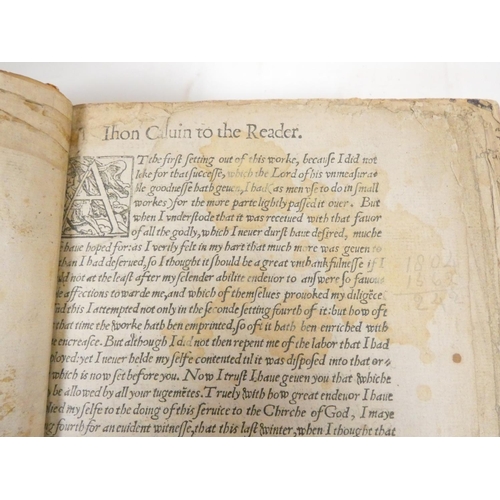 Ihon Caluin to the Reader.
AT the first setting out of this worke, because I did not
loke for that successe, which the Lord of his vnmeasura-
ble goodnesse hath geuen, I had (as men vse to do in small
workes) for the more parte lightly passed it ouer. But
when I vnderstode that it was receiued with that fauor
of all the godly, which I neuer durst haue desired, muche
haue hoped for: as I verily felt in my hart that much more was geuen to
than I had deserued, so I thought it should be a great vnthankfulnesse if I
not at the least after my slender abilite endeuor to answere so
affections towarde me, and which of themselues prouoked my diligẽce.
this I attempted not only in the seconde setting fourth of it: but how oft
that time the worke hath ben emprinted, so oft it hath ben enriched with
encrease. But although I did not then repent me of the labor that I had
yet I neuer helde my selfe contented til it was disposed into that or-
which is now set before you. Now I trust I haue geuen you that whiche
be allowed by all your iugemẽtes. Truely with how great endeuor I haue
my selfe to the doing of this seruice to the Chirche of God, I maye
fourth for an euident witnesse, that this last winter, when I thought that